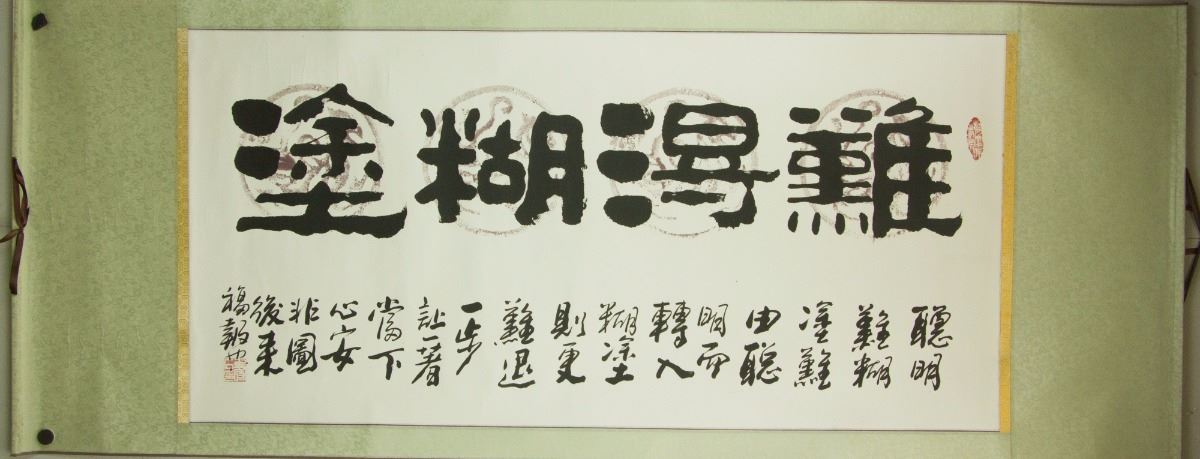 難得糊塗
聰明
難糊
塗難
由聰
明而
轉入
糊塗
則更
難退
一步
让一著
當下
心安
非圖
後来
福報也